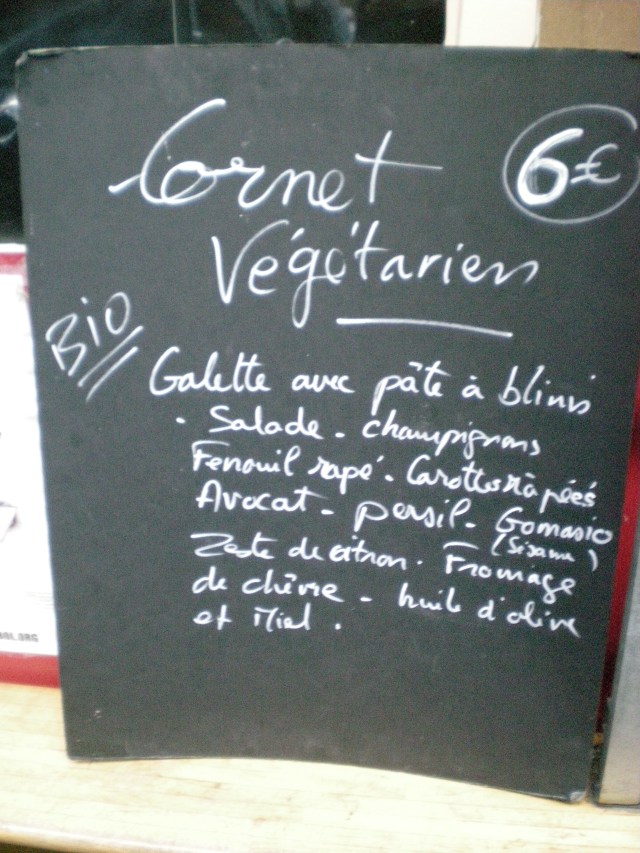 Cornet 6€
Végétarien
Bio
Galette avec pâte à blinis
. Salade - champignons
Fenouil rapé - Carottes rapées
Avocat - persil - Gomasio
(Sésame)
Zeste de citron - Fromage
de chèvre - huile d'olive
et Miel .
.ORG